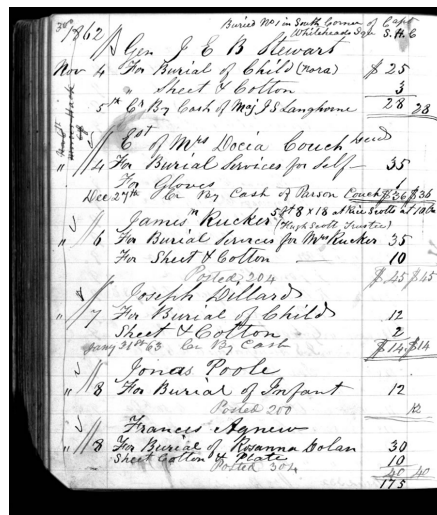 Buried No 1 in South Corner of Capt
Whiteheads Sqr S. H. C
1862
Gen J E B Stewart
Nov 4 For Burial of Child (Nora) $ 25
" Sheet & Cotton 3
5th Cr By Cash of Maj J S Langhorne 28 28
Est of Mrs Docia Couch
" 4 For Burial Services for Self 35
For Gloves 1
Dec 27th Cr By Cash of Parson Couch $36 $36
James Rucker 5 ft 8 x 18 at
(Hugh Scott Trustee)
" 6 For Burial Services for Mrs Rucker 35
For Sheet & Cotton 10
Posted 204 $45 $45
Joseph Dillard
" 7 For Burial of Child 12
Sheet & Cotton 2
Jany 31st 63 Cr By Cash $14 $14
Jonas Poole
" 8 For Burial of Infant 12
Posted 200 12
Francis Agnew
" 8 For Burial of Rosanna Dolan 30
Sheet Cotton & Plate 10
Posted 304 40 40
175